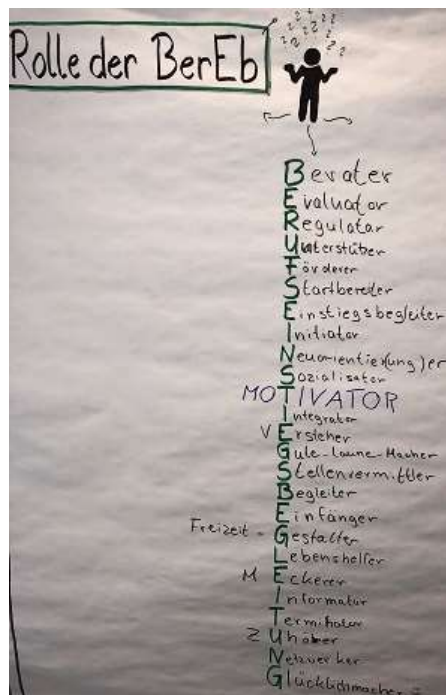 Rolle der BerEb
Berater
Evaluator
Regulator
Unterstüber
Förderer
Startbereiter
Einstiegsbegleiter
Initiator
Neuorientie(ung)er
Sozialisator
MOTIVATOR
Integrator
VErsteher
Gute-Laune-Macher
Stellenvermittler
Begleiter
Einfänger
Freizeit-Gestalter
Lebenshelfer
MEckerer
Informator
Terminator
ZUhörer
Netzwerker
Glücklichmacher